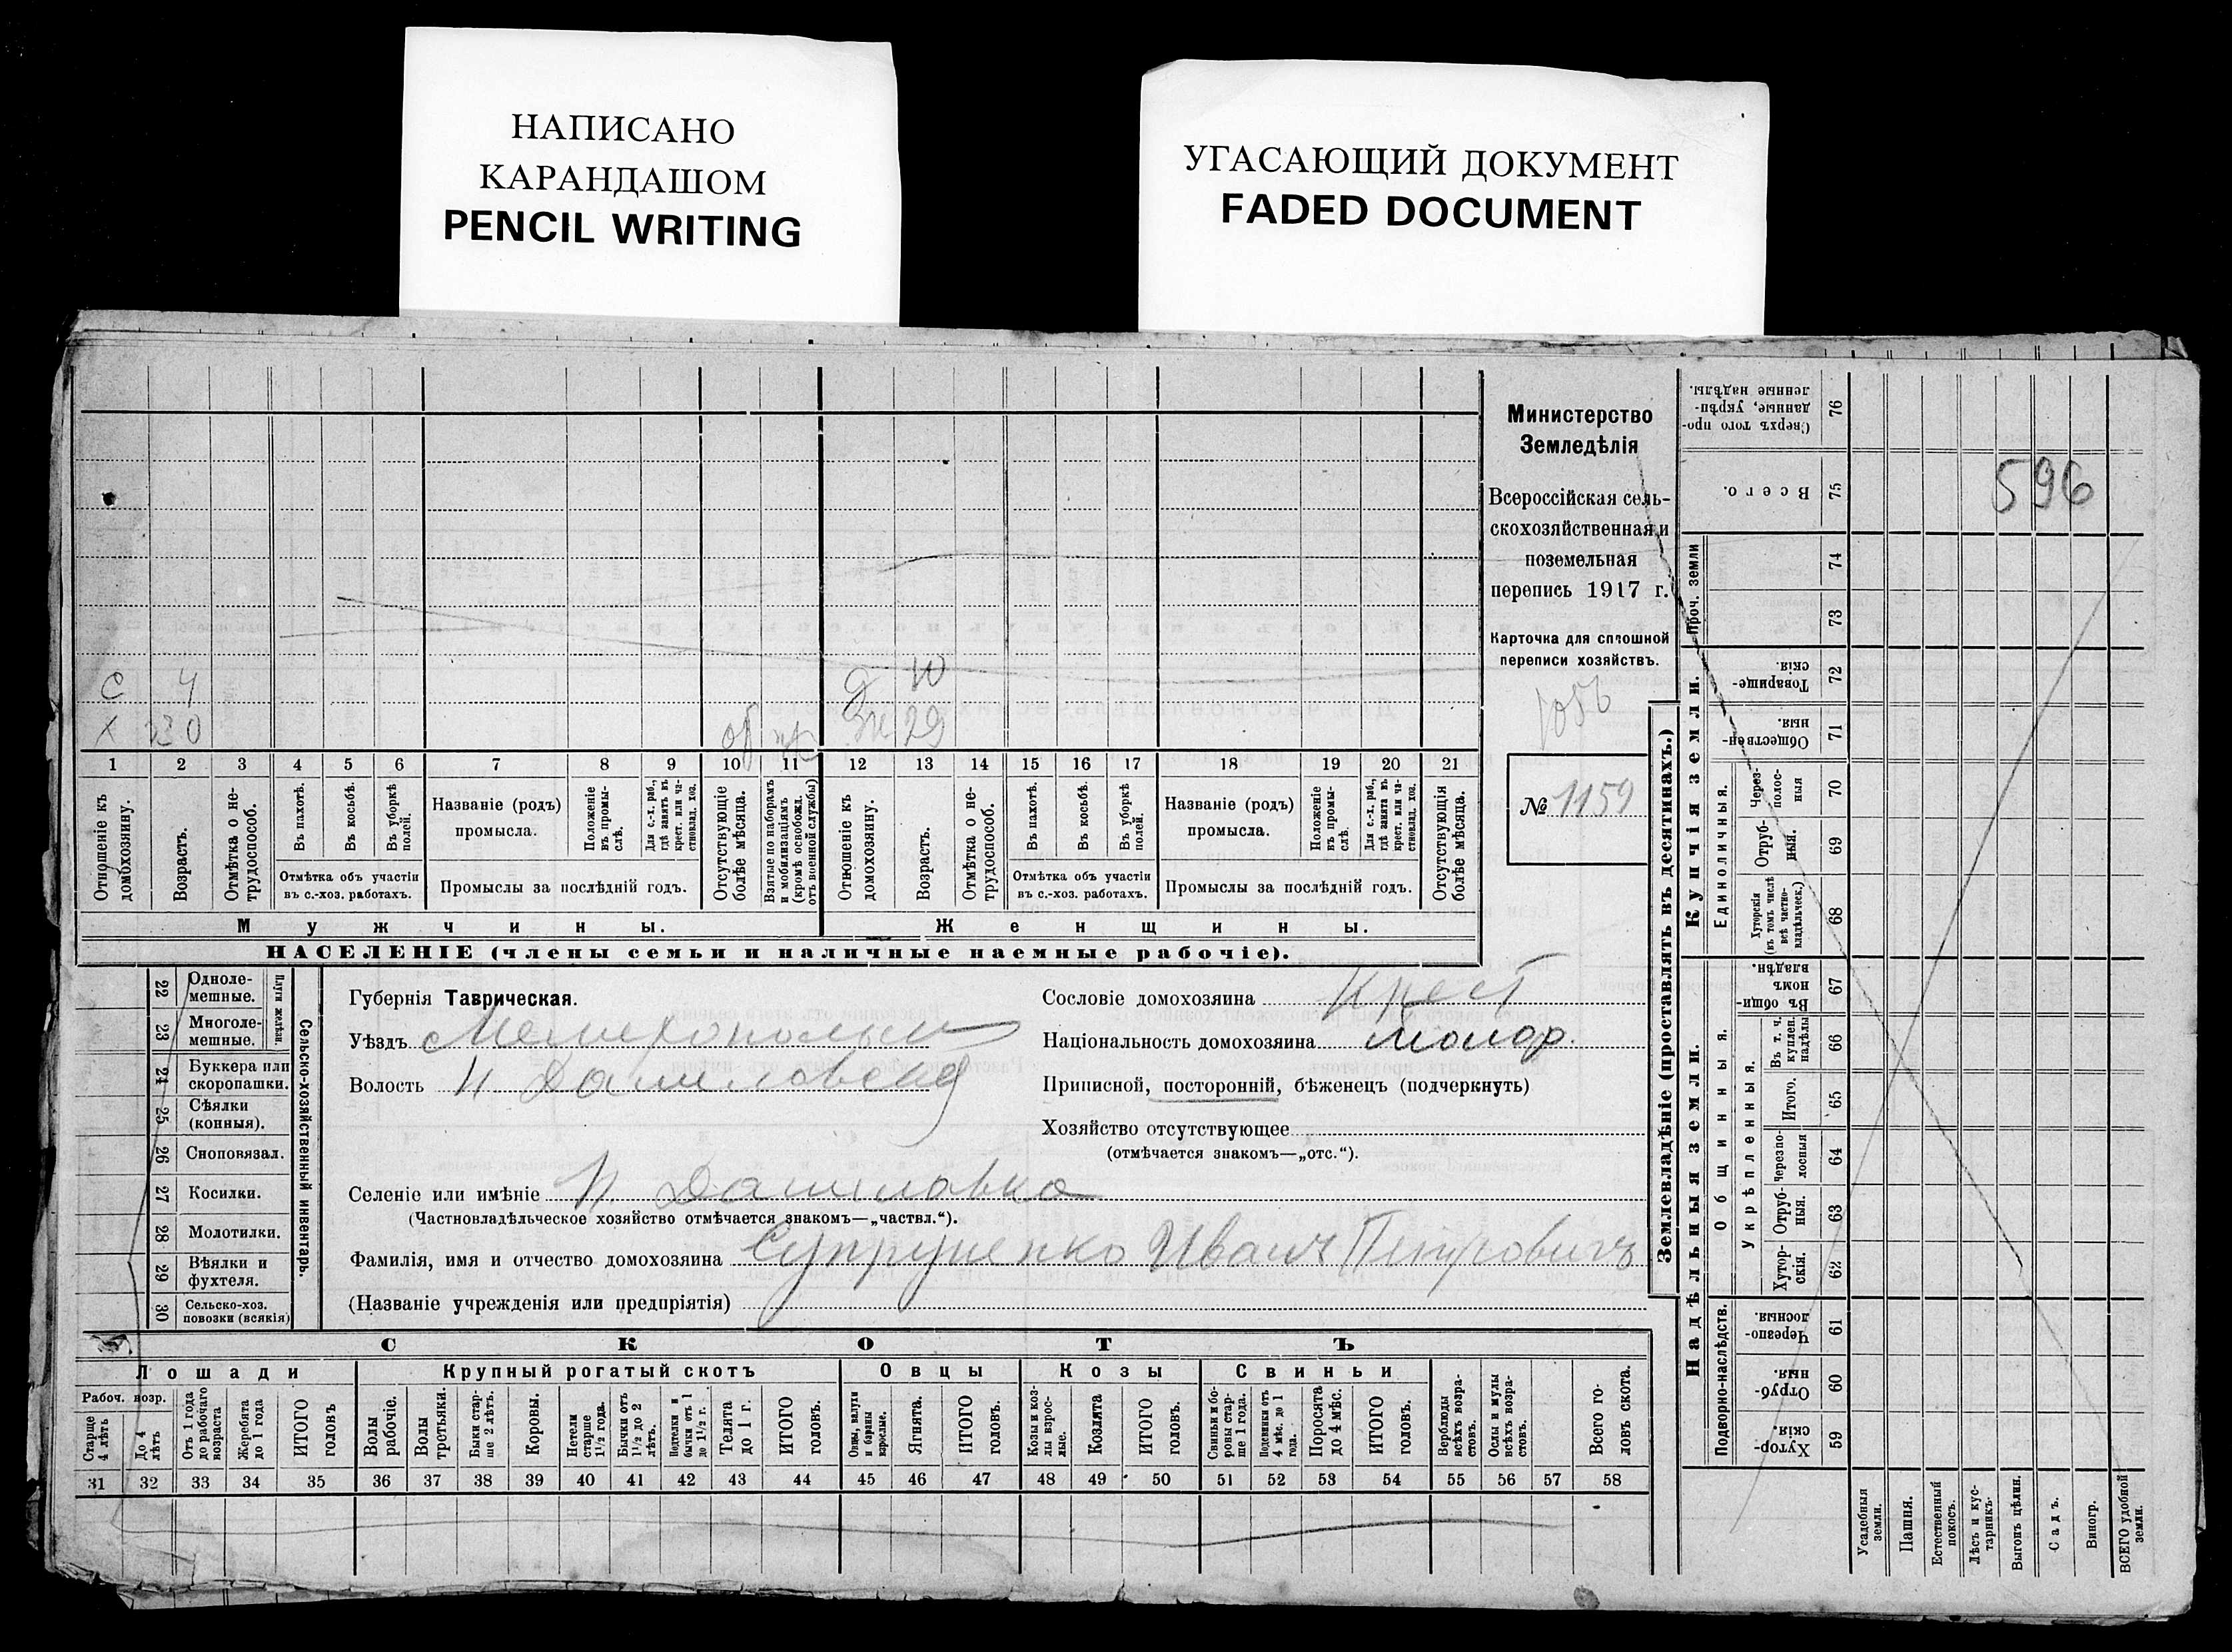 НАПИСАНО
КАРАНДАШОМ
PENCIL WRITING
УГАСАЮЩИЙ ДОКУМЕНТ
FADED DOCUMENT
Министерство
Земледѣлія
Всероссійская сель-
скохозяйственная и
поземельная
перепись 1917 г.
Карточка для сплошной
переписи хозяйствъ.
1056
№ 1159
596
с 4 д 10
х 30 ж 29
1 2 3 4 5 6 7 8 9 10 11 12 13 14 15 16 17 18 19 20 21
Отношеніе къ домохозяину.
Возрастъ.
Отмѣтка о не-трудоспособ.
Въ пахотѣ.
Въ косьбѣ.
Въ уборкѣ полей.
Отмѣтка объ участіи
въ с.-хоз. работахъ.
Названіе (родъ)
промысла.
Положеніе въ промы-слѣ.
Для с.-х. раб., гдѣ занятъ въ крест. или ча-стновлад. хоз.
Промыслы за послѣдній годъ.
Отсутствующіе болѣе мѣсяца.
Взятые по наборамъ и мобилизаціямъ (кромѣ освобожд. отъ военной службы)
Отношеніе къ домохозяину.
Возрастъ.
Отмѣтка о не-трудоспособ.
Въ пахотѣ.
Въ косьбѣ.
Въ уборкѣ полей.
Отмѣтка объ участіи
въ с.-хоз. работахъ.
Названіе (родъ)
промысла.
Положеніе въ промы-слѣ.
Для с.-х. раб., гдѣ занята въ крест. или ча-стновлад. хоз.
Промыслы за послѣдній годъ.
Отсутствующія болѣе мѣсяца.
Мужчины. Женщины.
НАСЕЛЕНІЕ (члены семьи и наличные наемные рабочіе).
Сельско-хозяйственный инвентарь.
Плуги желѣзн.
22 Одноле-мешные.
23 Многоле-мешные.
24 Буккера или скоропашки.
25 Сѣялки (конныя).
26 Сноповязал.
27 Косилки.
28 Молотилки.
29 Вѣялки и фухтеля.
30 Сельско-хоз. повозки (всякія)
Губернія Таврическая.
Уѣздъ Мелитопольск
Волость Н Даниловская
Селеніе или имѣніе Н Даниловка
(Частновладѣльческое хозяйство отмѣчается знакомъ—„частвл.“).
Фамилія, имя и отчество домохозяина Супруненко Иванъ Петровичъ
(Названіе учрежденія или предпріятія)
Сословіе домохозяина Крест
Національность домохозяина малор.
Приписной, посторонній, бѣженец (подчеркнуть)
Хозяйство отсутствующее
(отмѣчается знакомъ—„отс.“).
СКОТЪ
Лошади Крупный рогатый скотъ Овцы Козы Свиньи
Рабоч. возр.
Старше 4 лѣтъ
До 4 лѣтъ
Отъ 1 года до рабочаго возраста
Жеребята до 1 года
ИТОГО головъ
Волы рабочіе.
Волы третьяки.
Быки стар-ше 2 лѣтъ.
Коровы.
Нетели старше 1½ года.
Бычки отъ 1½ до 2 лѣтъ.
Подтелки и бычки отъ 1 до 1½ г.
Телята до 1 г.
ИТОГО головъ.
Овцы, валухи и бараны взрослые.
Ягнята.
ИТОГО головъ.
Козы и коз-лы взрос-лые.
Козлята
ИТОГО головъ.
Свиньи и бо-ровы стар-ше 1 года.
Подсвинки отъ 4 мѣс. до 1 года.
Поросята до 4 мѣс.
ИТОГО головъ.
Верблюды всѣхъ возра-стовъ.
Ослы и мулы всѣхъ возра-стовъ.
Всего го-ловъ скота.
31 32 33 34 35 36 37 38 39 40 41 42 43 44 45 46 47 48 49 50 51 52 53 54 55 56 57 58
Землевладѣніе (проставлять въ десятинахъ.)
Надѣльныя земли. Купчія земли. Проч. земли
Подворно-наслѣдств.
Общинныя.
Укрѣпленныя.
Единоличныя.
76 Сверхъ того про-данные, укрѣп-ленные надѣлы.
75 Всего.
74
73
72 Товарище-скія.
71 Обществен-ныя.
70 Через-полос-ныя
69 Отруб-ныя.
68 Хуторскія (въ томъ числѣ всѣ частно-владѣльческ.)
67 Въ общин-номъ владѣн.
66 Въ т. ч. куплен. надѣлы
65 Итого.
64 Черезпо-лосныя
63 Отруб-ныя.
62 Хутор-скія.
61 Черезпо-лосныя.
60 Отруб-ныя.
59 Хутор-скія.
Усадебныя земли.
Пашня.
Естественный покосъ.
Лѣсъ и кус-тарникъ.
Выгонъ цѣлин.
Садъ.
Виногр.
ВСЕГО удобной земли.